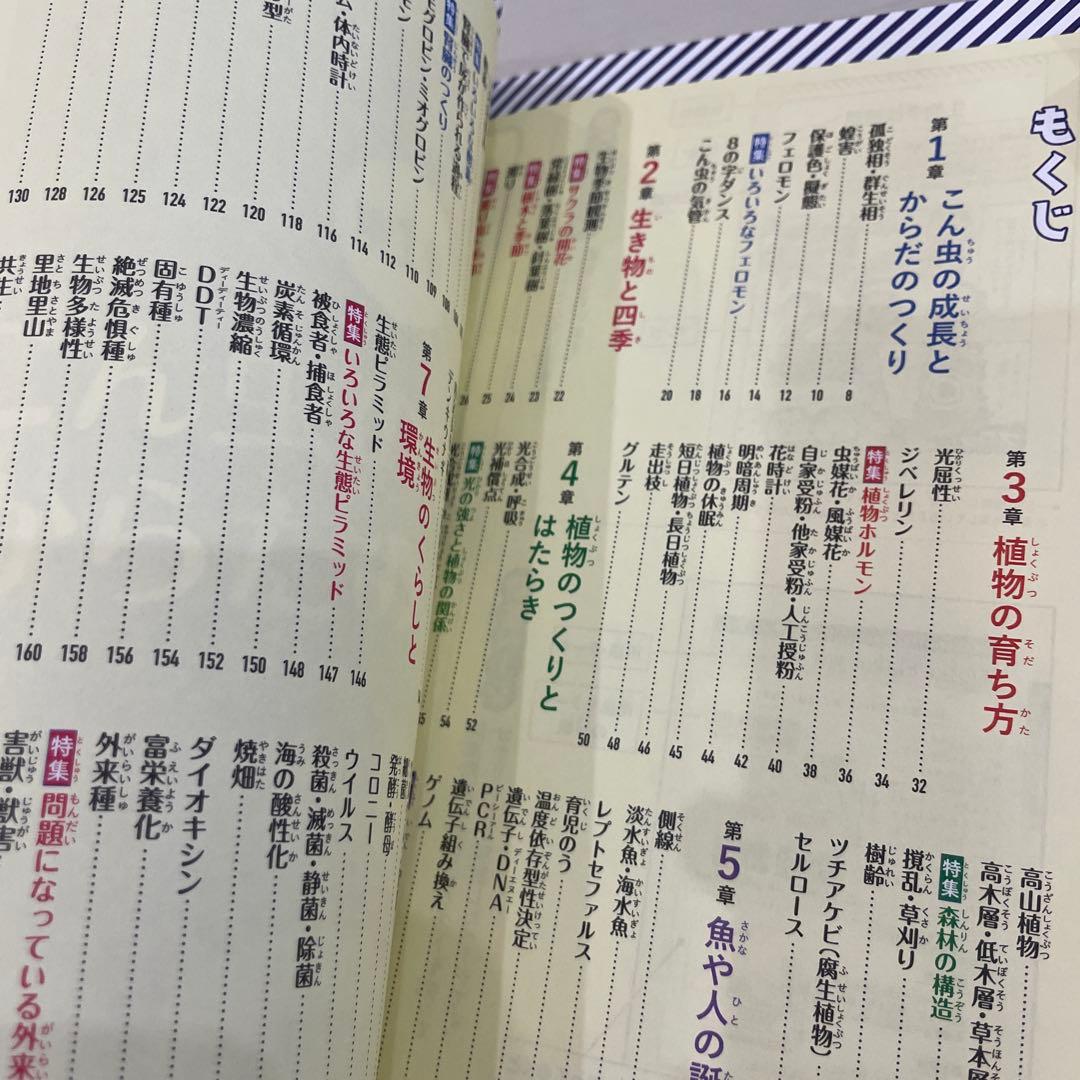 もくじ
第1章 こん虫の成長とからだのつくり
孤独相・群生相 8
蝗害 10
保護色・擬態 12
フェロモン 14
特集 いろいろなフェロモン 16
8の字ダンス 18
こん虫の気管 20
第2章 生き物と四季
生物季節観測 22
特集 サクラの開花 23
常緑樹・落葉樹・針葉樹 24
特集 樹木と季節 25
渡り 26
第3章 植物の育ち方
光屈性 32
ジベレリン 34
特集 植物ホルモン 36
虫媒花・風媒花 38
自家受粉・他家受粉・人工授粉 40
花時計 42
明暗周期 44
植物の休眠 45
短日植物・長日植物 46
走出枝 48
グルテン 50
第4章 植物のつくりとはたらき
光合成・呼吸 52
光補償点 54
特集 光の強さと植物の関係 55
高山植物
高木層・低木層・草本層
特集 森林の構造
撹乱・草刈り
樹齢
ツチアケビ(腐生植物)
セルロース
第5章 魚や人の誕
側線
淡水魚・海水魚
レプトセファルス
育児のう
温度依存型性決定
遺伝子・DNA
PCR
遺伝子組み換え
ゲノム
108
109
110
モグロビン・ミオグロビン
112
114
116
体内時計
118
120
122
124
125
126
128
130
第7章 生物のくらしと環境
生態ピラミッド 146
特集 いろいろな生態ピラミッド 147
被食者・捕食者 148
炭素循環 150
生物濃縮 152
DDT 154
固有種 156
絶滅危惧種 158
生物多様性 160
里地里山
共生
発酵・酵母
コロニー
ウイルス
殺菌・滅菌・静菌・除菌
海の酸性化
焼畑
ダイオキシン
富栄養化
外来種
特集 問題になっている外来
害獣・獣害